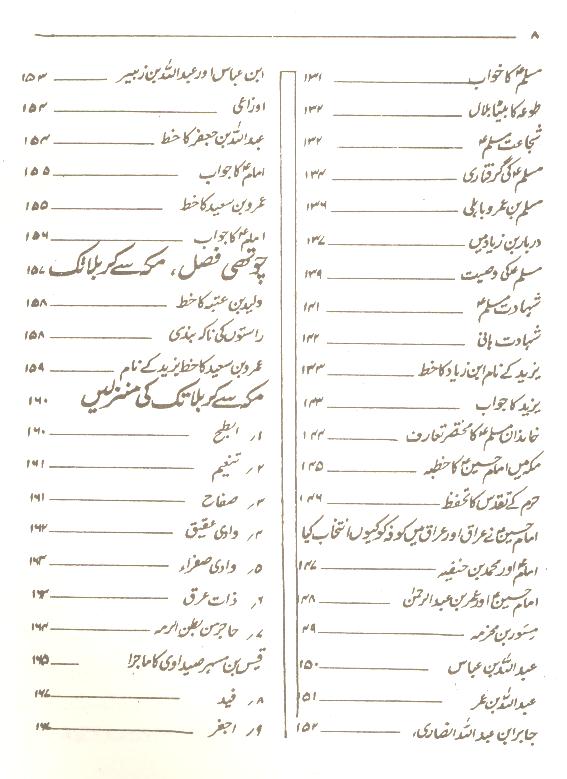 ۸
مسلمؑ کا خواب ۱۳۱
طوعہ کا بیٹا بلال ۱۳۲
شجاعت مسلمؑ ۱۳۲
مسلمؑ کی گرفتاری ۱۳۴
مسلم بن عمرو باہلی ۱۳۶
دربار بن زیاد میں ۱۳۷
مسلمؑ کی وصیت ۱۳۹
شہادت مسلمؑ ۱۴۱
شہادت ہانی ۱۴۲
یزید کے نام ابن زیاد کا خط ۱۴۳
یزید کا جواب ۱۴۳
خاندان مسلمؑ کا مختصر تعارف ۱۴۴
مکہ میں امام حسینؑ کا خطبہ ۱۴۵
حرم کے تقدس کا تحفظ ۱۴۶
امام حسینؑ نے عراق اور عراق میں کوفہ کو کیوں انتخاب کیا
امامؑ اور محمد بن حنفیہ ۱۴۷
امام حسینؑ اور عمر بن عبدالرحمٰن ۱۴۸
مسور بن مخرمہ ۱۴۹
عبداللہ بن عباس ۱۵۰
عبداللہ بن عمر ۱۵۱
جابر ابن عبداللہ انصاری، ۱۵۲
ابن عباس اور عبداللہ بن زبیر ۱۵۳
اوزاعی ۱۵۴
عبداللہ بن جعفر کا خط ۱۵۴
امامؑ کا جواب ۱۵۵
عمرو بن سعید کا خط ۱۵۵
امامؑ کا جواب ۱۵۶
چوتھی فصل، مکہ سے کربلا تک ۱۵۷
ولید بن عتبہ کا خط ۱۵۸
راستوں کی ناکہ بندی ۱۵۸
عمرو بن سعید کا خط یزید کے نام ۱۵۹
مکہ سے کربلا تک کی منزلیں ۱۶۰
۱۔ ابطح ۱۶۰
۲۔ تنعیم ۱۶۱
۳۔ صفاح ۱۶۱
۴۔ وادی عقیق ۱۶۲
۵۔ وادی صفراء ۱۶۳
۶۔ ذات عرق ۱۶۳
۷۔ حاجر من بطن الرمہ ۱۶۴
قیس بن مسہر صیداوی کا ماجرا ۱۶۵
۸۔ فید ۱۶۷
۹۔ اجفر ۱۶۷